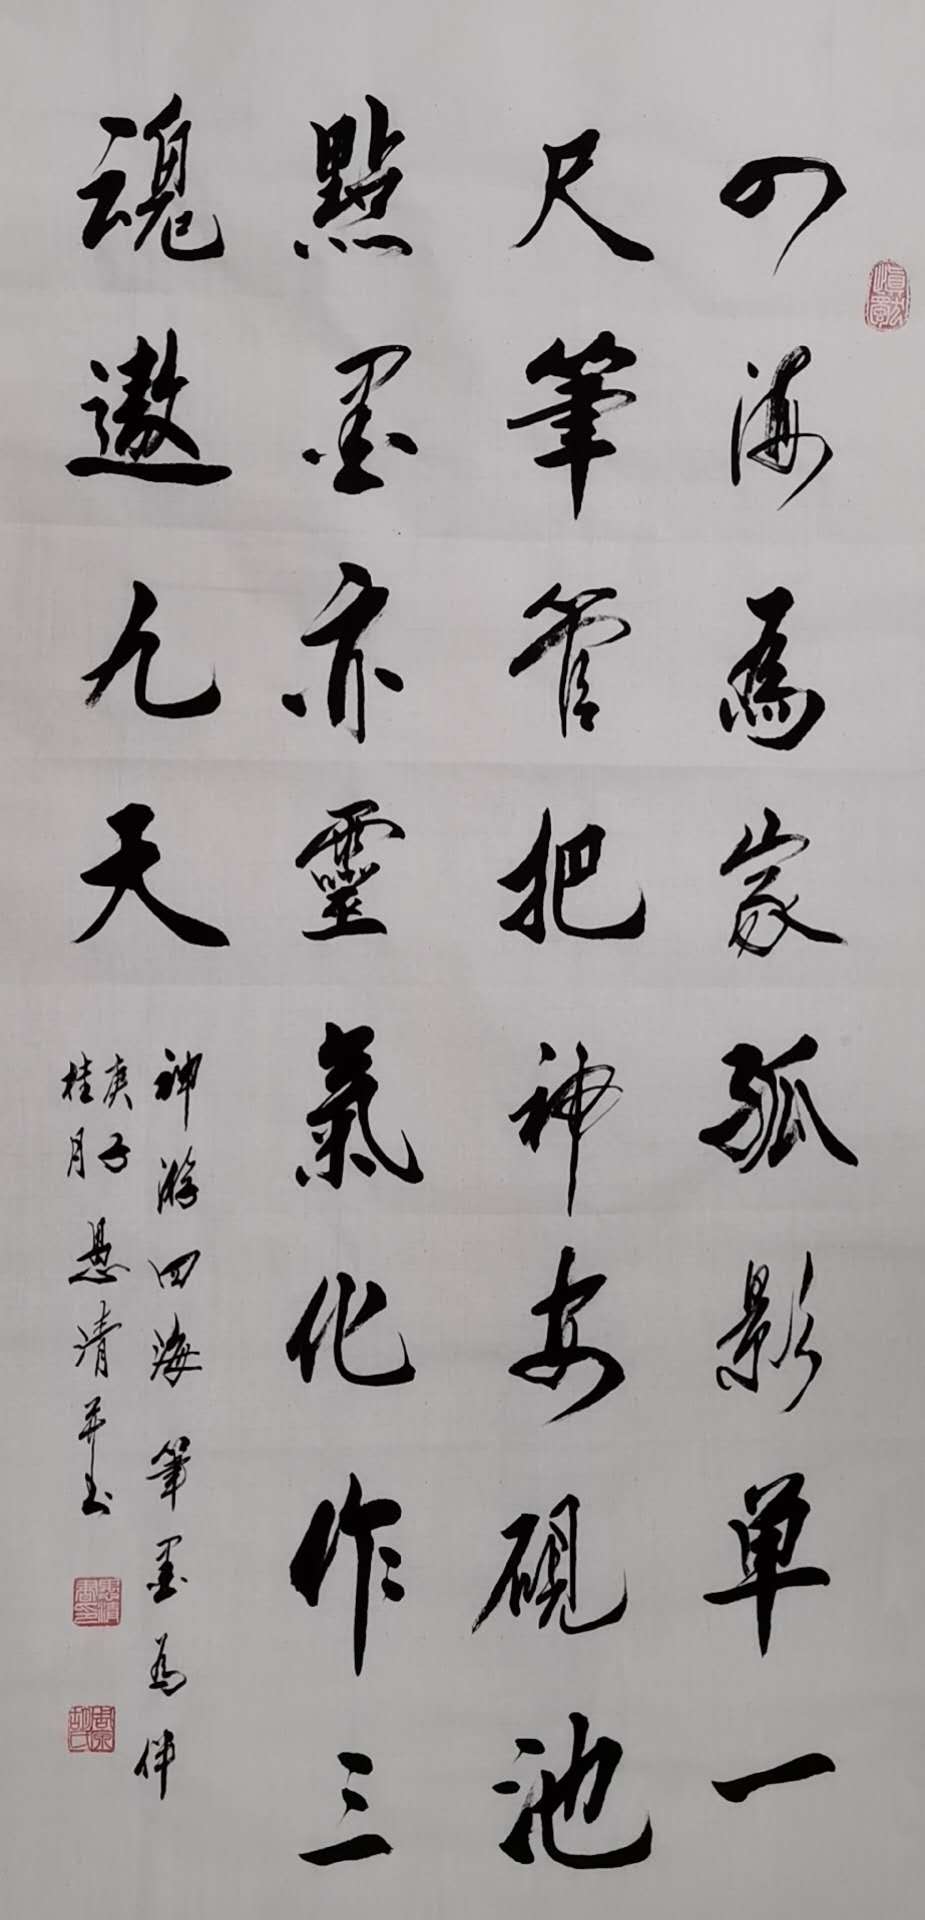 四海為家孤影单一
尺筆管把神安硯池
點墨亦靈氣化作三
魂遨九天
神游四海筆墨為伴
庚子
桂月
愚清并书